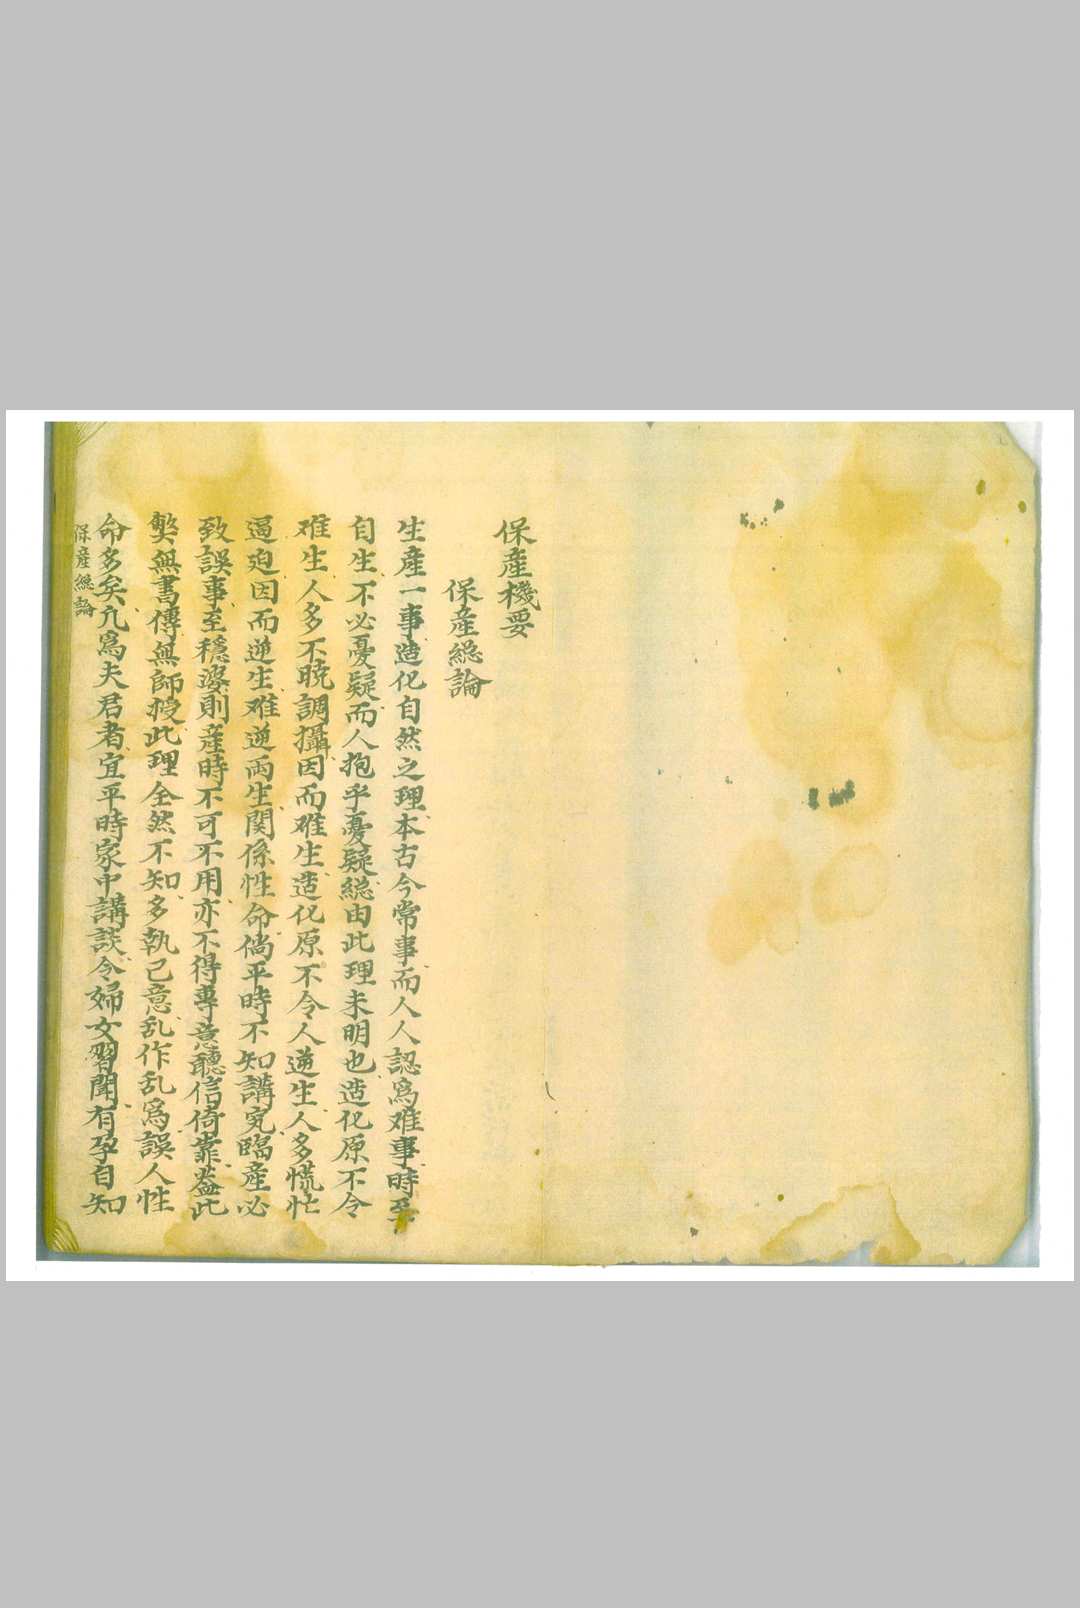 保産機要
保産総論
生産一事造化自然之理本古今常事而人人認爲难事時至
自生不必憂疑而人抱乎憂疑総由此理未明也造化原不令
难生人多不晓調攝因而难生造化原不令人逆生人多慌忙
逼迫因而逆生难逆両生関係性命倘平時不知講究臨産必
致誤事至穩婆則産時不可不用亦不得專意聽信倚靠盖此
獘無書傳無師授此理全然不知多執己意乱作乱爲誤人性
命多矣凢爲夫君者宜平時家中講談令婦女習聞有孕自知
保産総論